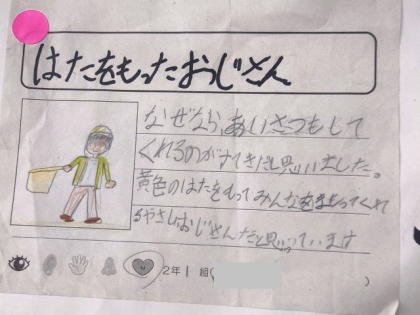 はたをもったおじさん
なぜなら、あいさつもして
くれるのがすてきだと思いました。
黄色のはたをもってみんなをまもってくれ
るやさしいおじさんだと思っています
2年1組(
)